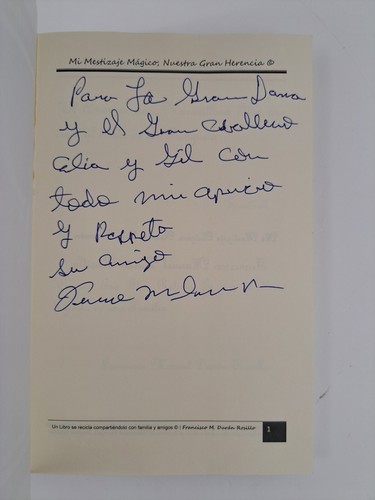 Mi Mestizaje Mágico; Nuestra Gran Herencia ©
Para La Gran Dama
y el Gran Caballero
Celia y Gil con
todo mi aprecio
y Respeto
su amigo
Un Libro se recicla compartiéndolo con familia y amigos © / Francisco M. Durán Rosillo
1